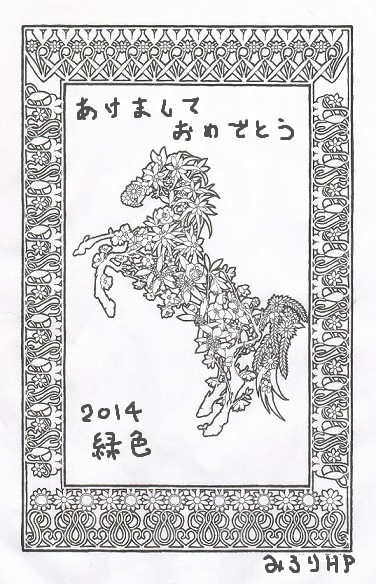 あけまして
おめでとう
2014
緑色
みろりHP